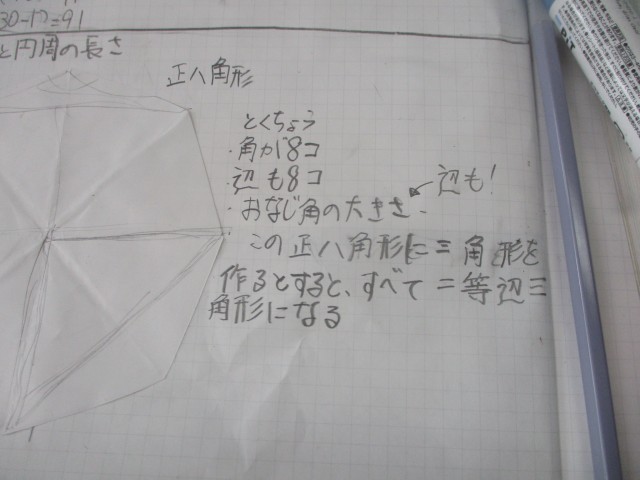 30-17=91
と円周の長さ
正八角形
とくちょう
・角が8コ
・辺も8コ
・おなじ角の大きさ、
辺も!
この正八角形に三角形を
作るとすると、すべて二等辺三
角形になる
PiT